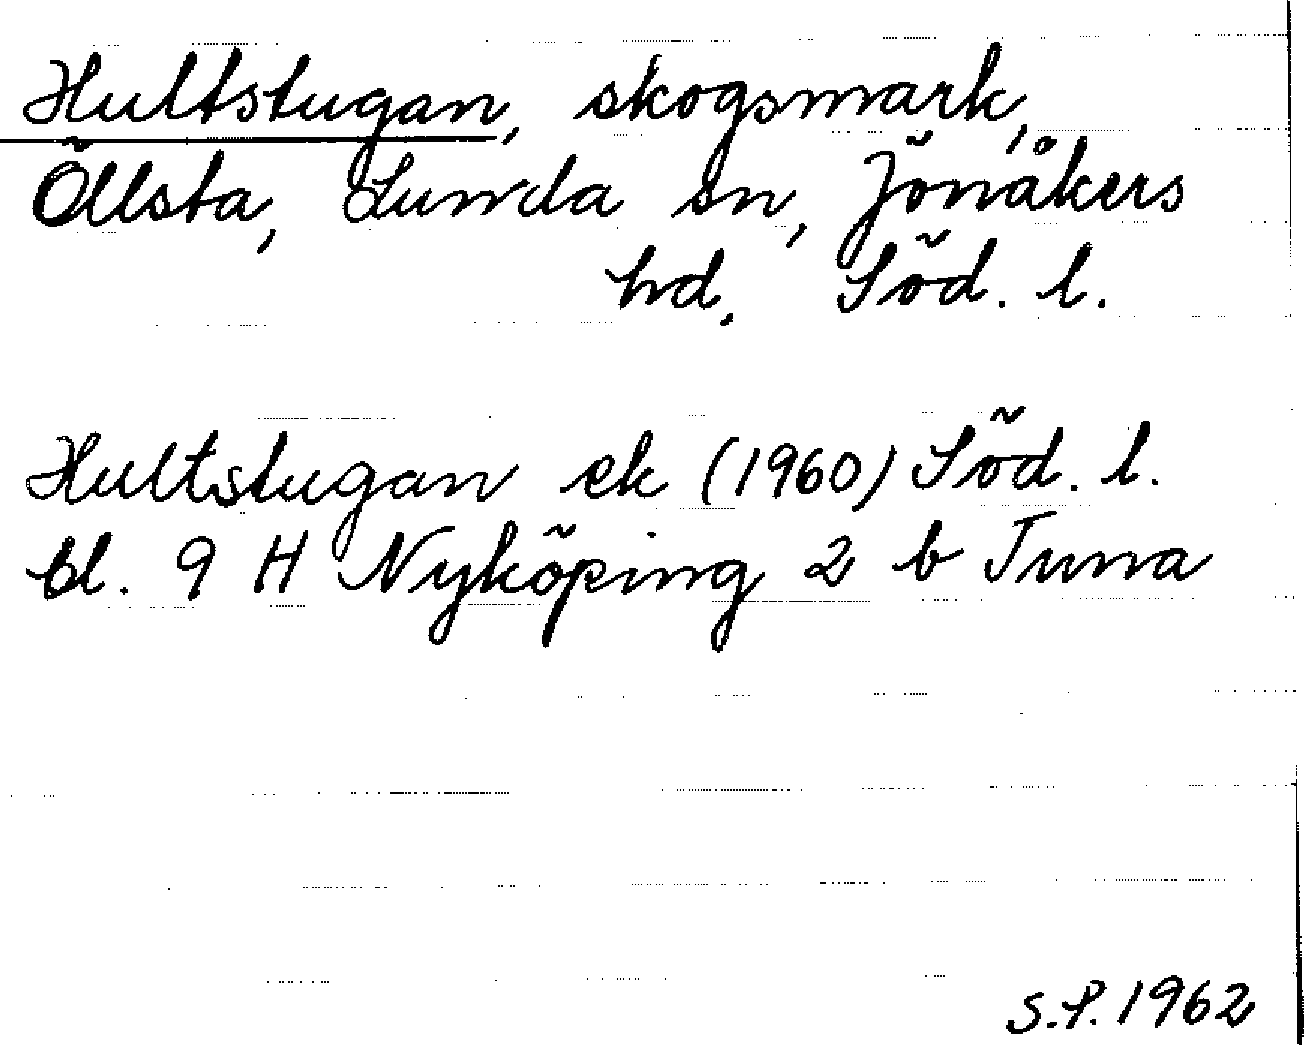 Hultstugan, skogsmark,
Öllsta, Lunda sn, Jönåkers
hd. Söd. l.
Hultstugan ek (1960) Söd. l.
bl. 9 H Nyköping 2 b Tuna
S.P. 1962